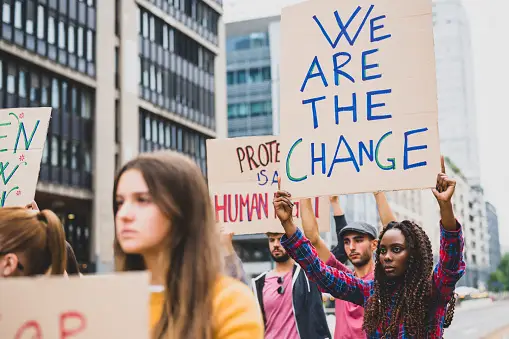 WE
ARE
THE
CHANGE
PROTE
IS A
HUMAN
EN
W